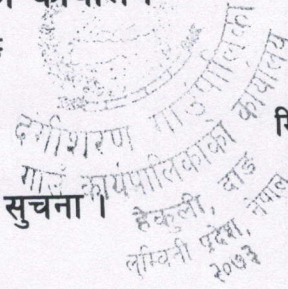 दंगीशरण गाउँपालिका
गाउँ कार्यपालिकाको कार्यालय
सुचना ।
हेकुली, दाङ
लुम्बिनी प्रदेश, नेपाल
२०७३